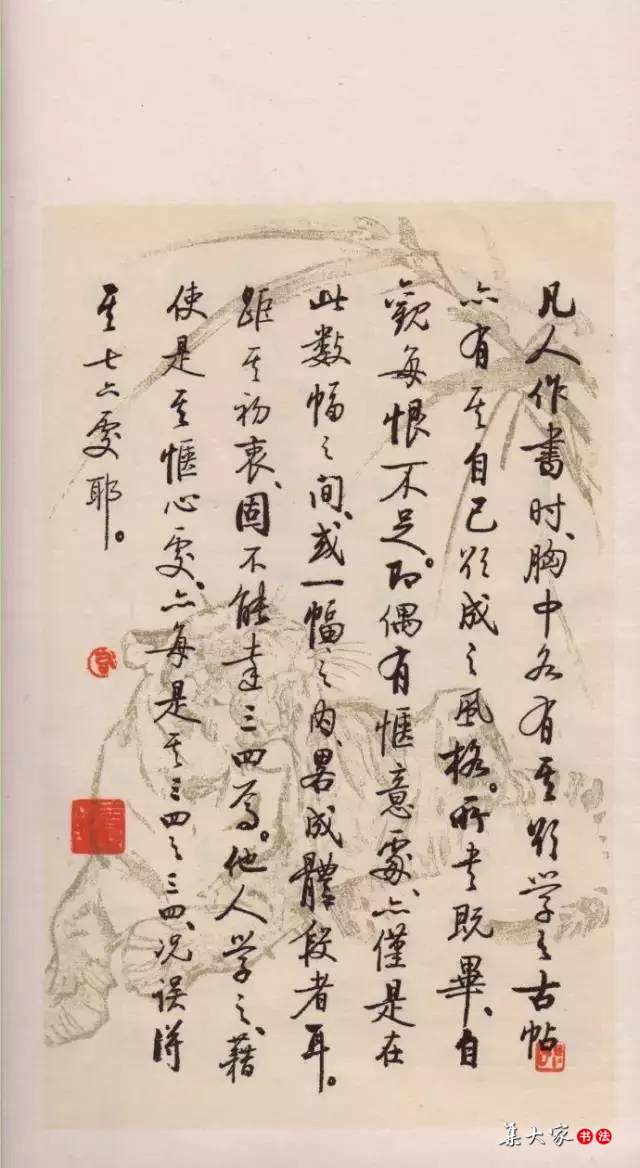 凡人作書时、胸中各有其欲学之古帖
亦有其自己欲成之風格。所书既畢、自
觀每恨不足。即偶有惬意處、亦僅是在
此数幅之间、或一幅之内、畧成體段者耳。
距其初衷、固不能达三四焉。他人学之、藉
使是其惬心处、亦每是其三四之三四、况误得
其七六处耶。
集大家书法